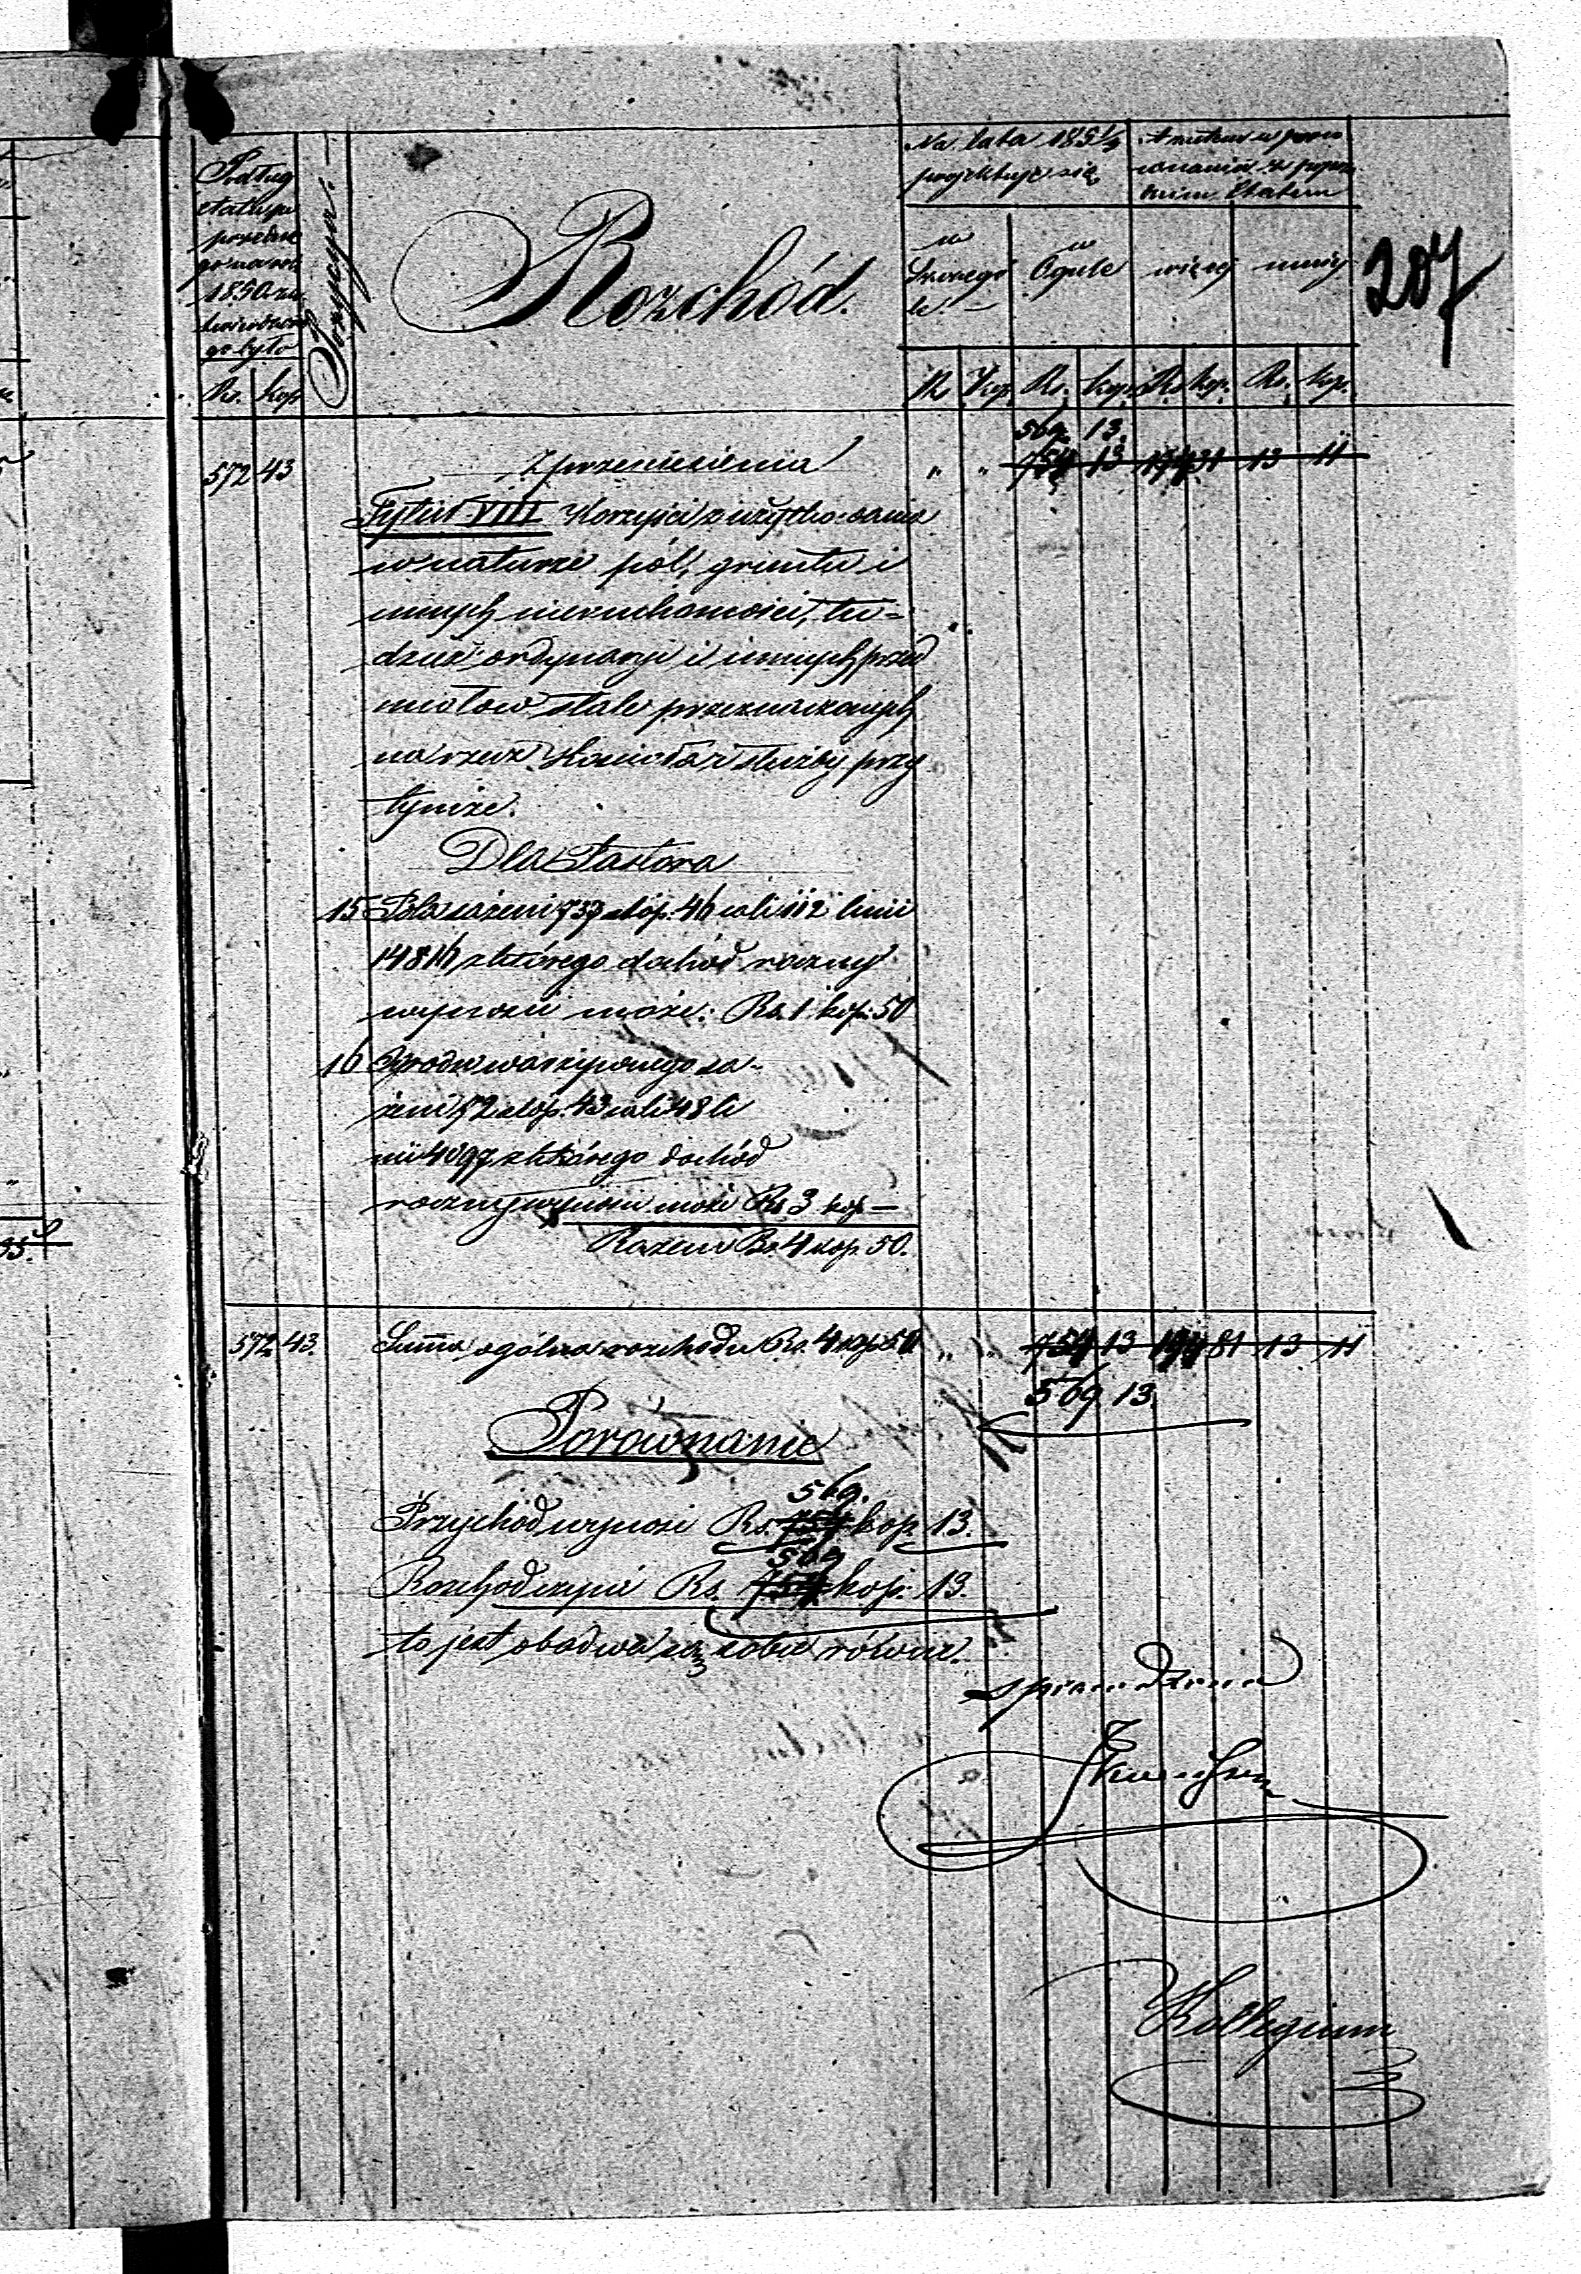 207
Podług
etatu po
przednie
go na rok
1850 za
twierdzone
go było
Rs. kop
Pozycya
Rozchód.
Na lata 185
projektuje się
w
Szczegó
le.
w
Ogule
A zatem w poró
wnaniu z poprze
dnim Etatem
więcej
mniej
Rs Kop. Rs. kop. Rs kop. Rs. kop.
569 13.
572 43 Z przeniesienia " " 754 13 13 11
Tytuł VIII Korzyści z użytkowania
w naturze pól, gruntu i
innych nieruchomości, tu-
dzież ordynaryi i innych przed
miotów stale przeznaczonych
na rzecz Kościoła i służby przy
tymże.
Dla Pastora
15 Pola sążeni 737 stóp. 46 cali 112 linii
14816 z którego dochód roczny
wynosić może: Rs. 1 kop: 50
16 Ogrodu warzywnego są-
żeni 52 stóp. 43 cali 48 li
nii 4097 z którego dochód
roczny wynosić może Rs 3 kop —
Razem Rs. 4 kop. 50.
572 43. Summa ogólna rozchodu Rs. 4 kop 50 " " 754 13 81 13 11
569 13.
Porównanie
569.
Przychód wynosi Rs. 754 kop 13.
569
Rozchód czyni Rs. 754 kop. 13.
to jest obadwa są sobie równe.
Sprawdzono
Kollegium